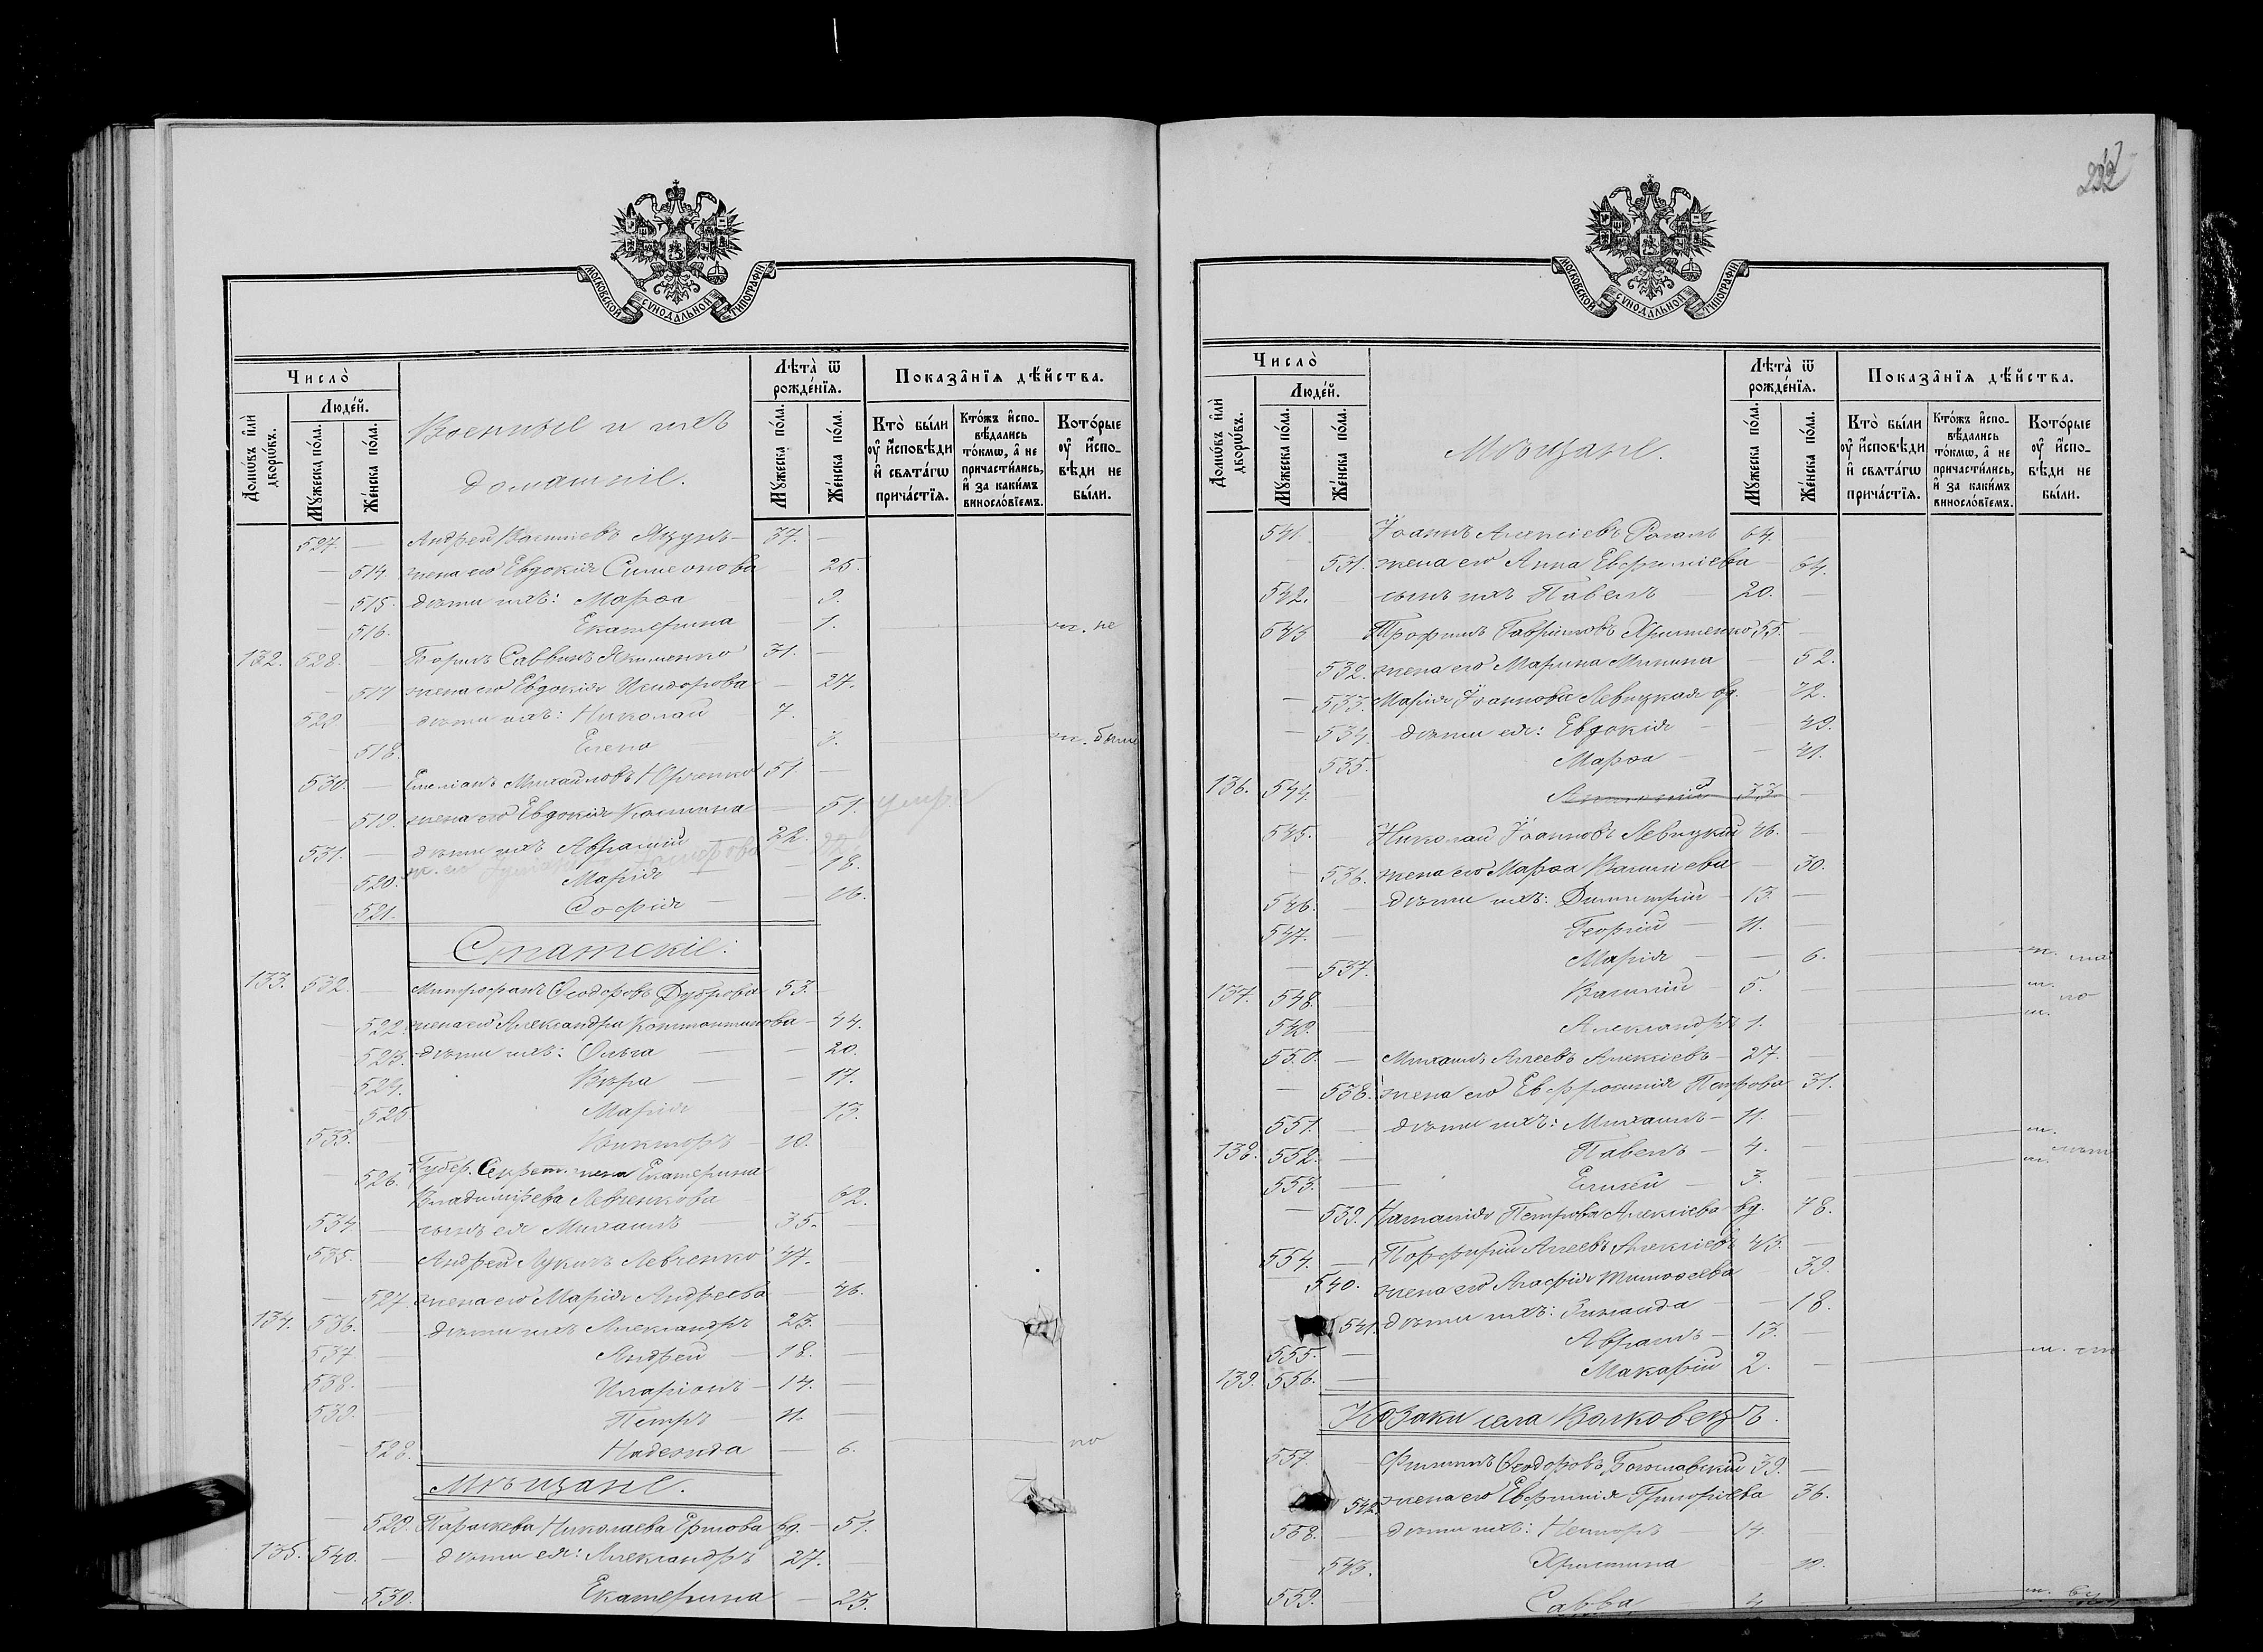 МОСКОВСКОЙ СУНОДАЛЬНОЙ ТИПОГРАФІИ
Число̀
Домѡ́въ и҆лѝ дворѡ́въ.
Люде́й.
Му́жеска по́ла.
Же́нска по́ла.
Военные и ихъ
домашніе.
Лѣта̀ ѿ рожде́нїя.
Му́жеска по́ла.
Же́нска по́ла.
Показа̑нїя дѣ́йства.
Кто̀ бы́ли ᲂу҆ и҆́сповѣди и҆ свята́гѡ прича́стїя.
Кто́жъ и҆спо-вѣ́дались то́кмѡ, а҆ не причасти́лись, и҆ за каки́мъ винослóвїемъ.
Кото́рые ᲂу҆ и҆спо-вѣ́ди не бы́ли.
527. — Андрей Васильевъ — 37. —
— 514. жена его Евдокія Симеонова — 25.
— 515. дѣти ихъ: Марѳа — 9.
— 516. Екатерина — 1. м. не
132. 528. — Борисъ Саввинъ Якименко 31. —
— 517 жена его Евдокія Исидорова — 27.
529 — дѣти ихъ: Николай 7.
— 518. Елена — 3. м. были
530. — Емеліанъ Михайловъ Юрченко 51. —
— 519. жена его Евдокія Космина — 51. умре
531. — дѣти ихъ Авраамій 22.
520. Марія — 18.
— 521. Софія — 16.
Статскіе:
133. 532. — Митрофанъ Ѳеодоровъ Дуброва 53. —
522. жена его Александра Константинова — 44.
523. дѣти ихъ: Ольга — 20.
— 524. Вѣра — 17.
— 525 Марія — 13.
533. — Викторъ — 10.
— 526. Губер. Секрет. жена Екатерина
Владимірева Левченкова 62.
534. — сынъ ея Михаилъ 35.
535. — Андрей Лукинъ Левченко 47. —
— 527. жена его Марія Андреева — 46.
134. 536. — дѣти ихъ Александръ 23. —
537 — Андрей — 18. —
538. — Иларіонъ — 14. —
539. — Петръ — 11. —
— 528. Надежда — 6. по
Мѣщане.
— 529. Параскева Николаева Ершова вд. — 51.
135. 540. — дѣти ея: Александръ 27. —
— 530. Екатерина — 23.
МОСКОВСКОЙ СУНОДАЛЬНОЙ ТИПОГРАФІИ
Число̀
Домѡ́въ и҆лѝ дворѡ́въ.
Люде́й.
Му́жеска по́ла.
Же́нска по́ла.
Мѣщане.
Лѣта̀ ѿ рожде́нїя.
Му́жеска по́ла.
Же́нска по́ла.
Показа̑нїя дѣ́йства.
Кто̀ бы́ли ᲂу҆ и҆́сповѣди и҆ свята́гѡ прича́стїя.
Кто́жъ и҆спо-вѣ́дались то́кмѡ, а҆ не причасти́лись, и҆ за каки́мъ винослóвїемъ.
Кото́рые ᲂу҆ и҆спо-вѣ́ди не бы́ли.
541. — Іоаннъ Алексіевъ Рогаль 64. —
— 531. жена его Анна Евфиміева — 64.
542. сынъ ихъ Павелъ — 20. —
543 Трофимъ Гавриловъ Христенко 55. —
— 532. жена его Марина Минина — 52.
— 533. Марія Іоаннова Левицкая вд. — 72.
— 534. дѣти ея: Евдокія — 49.
535. Марѳа — 41.
136. 544. — Антоній 33. —
545. — Николай Іоанновъ Левицкій 46. —
— 536. жена его Марѳа Васильева — 30.
546. — дѣти ихъ: Димитрій — 13. —
547. — Георгій — 11. —
— 537. Марія — 6. м.
137. 548. Василій — 5. м. по
549. — Александръ 1. м.
550. — Михаилъ Алексіевъ — 27. —
— 538. жена его Евфросинія Петрова 31.
551. — дѣти ихъ: Михаилъ — 11. —
138. 552. — Павелъ — 4. — м.
553. — Елисей — 3. м.
— 539. Наталія Петрова Алексіева вд. — 78.
554. — Порфирій Алексіевъ 43. —
540. жена его Агафія Тимоѳеева 39.
541. дѣти ихъ: Зинаида — 18.
555. — Авраамъ — 13. —
139. 556. — Макарій 2. — м.
Козаки села Волковецъ.
557. Филиппъ Ѳеодоровъ Богославскій 39. —
542. жена его Евфимія Григоріева 36.
558. — дѣти ихъ: Несторъ — 14
— 543. Христина — 12.
559. — Савва — 4 м.